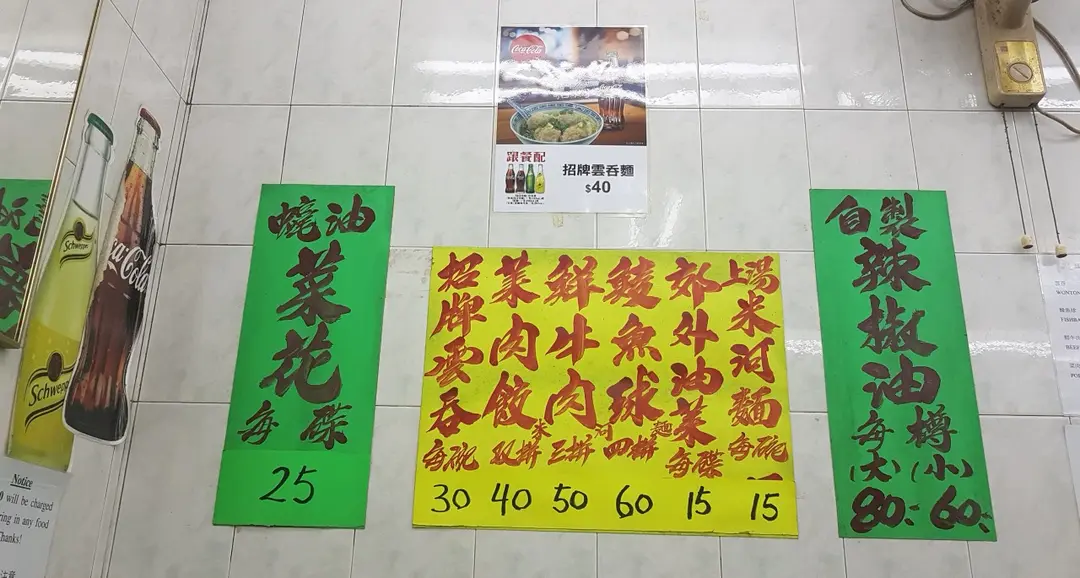 Coca-Cola
跟餐配
招牌雲吞麵
$40
蠔油
菜花
每碟
25
招牌雲吞每碗
30
菜肉餃双拼
40
鮮牛肉三拼
50
鯪魚球四拼
60
米河麵
郊外油菜每碟
15
上湯米河麵每碗
15
自製
辣椒油
每樽
(大) (小)
80. 60.
Schweppes
Coca-Cola
Schweppes
Notice
will be charged
in any food
注意